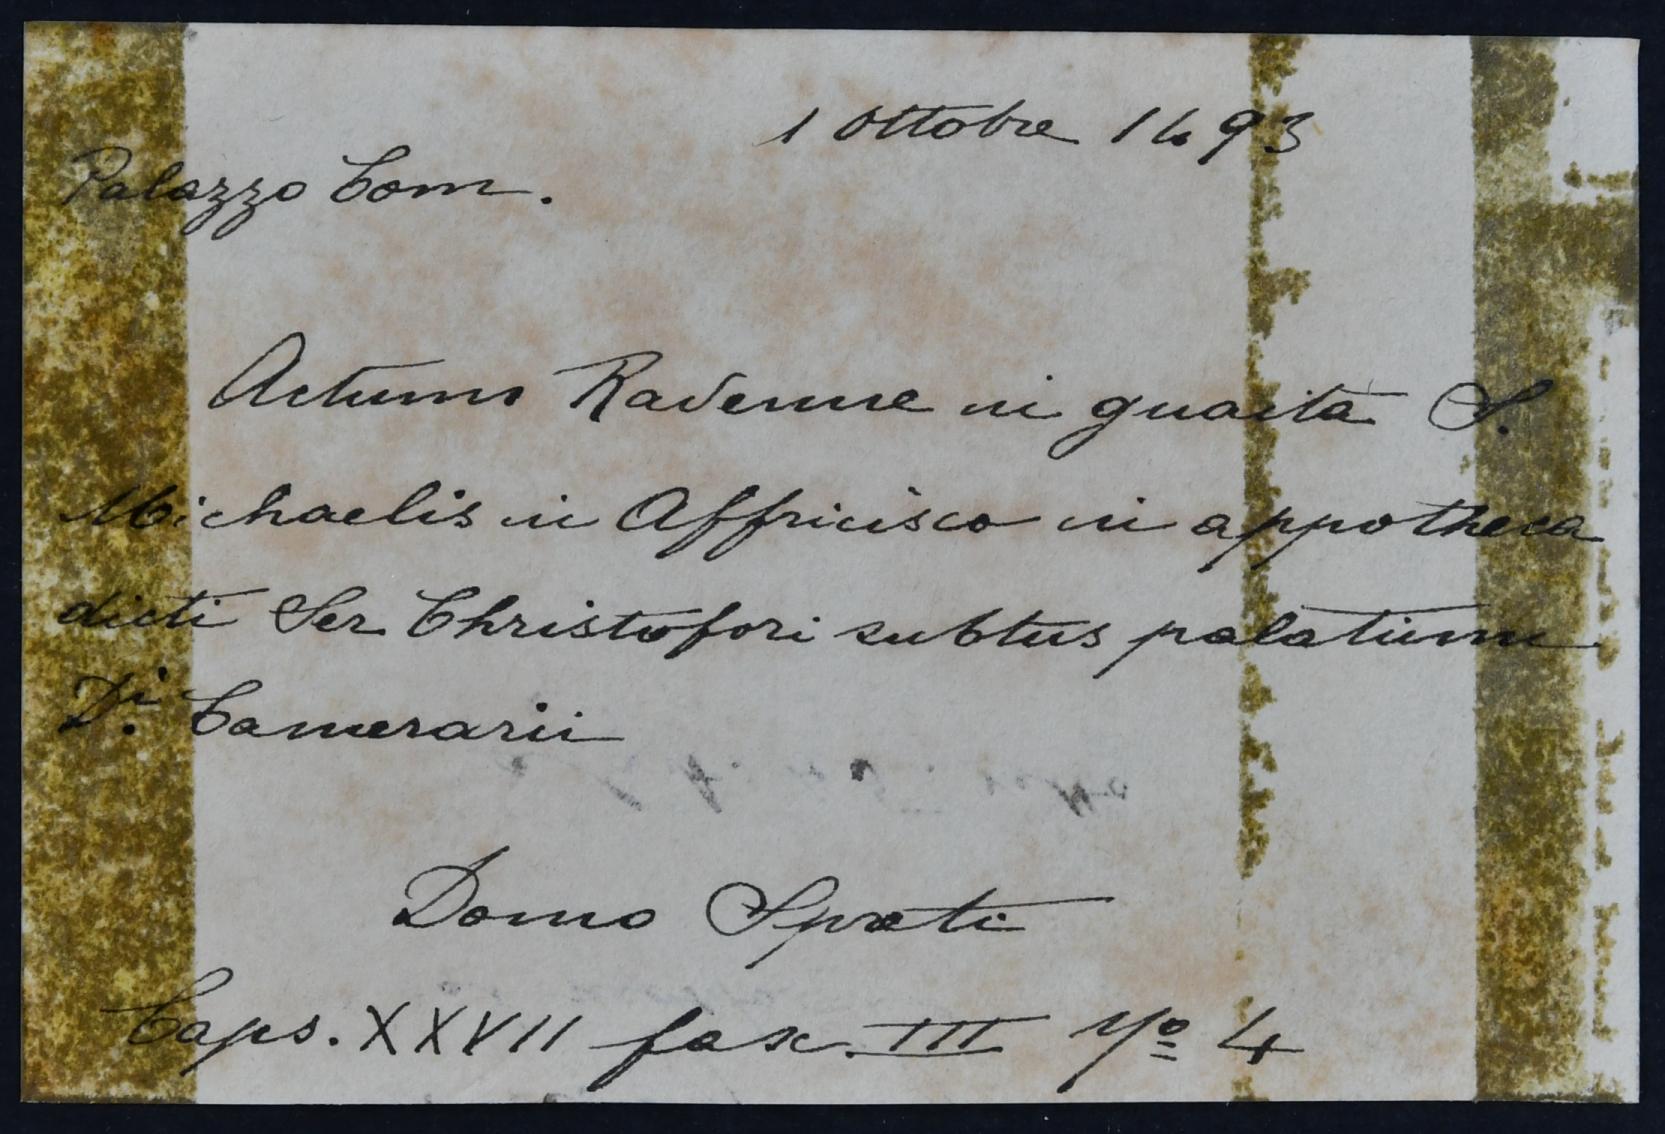 1 Ottobre 1493
Palazzo Com.
Actum Ravenne in guaita S.
Michaelis in Affricisco in appotheca
dicti Ser Christofori subtus palatium
Di. Camerarii
Domo Spreti
Caps. XXVII fasc. III No 4